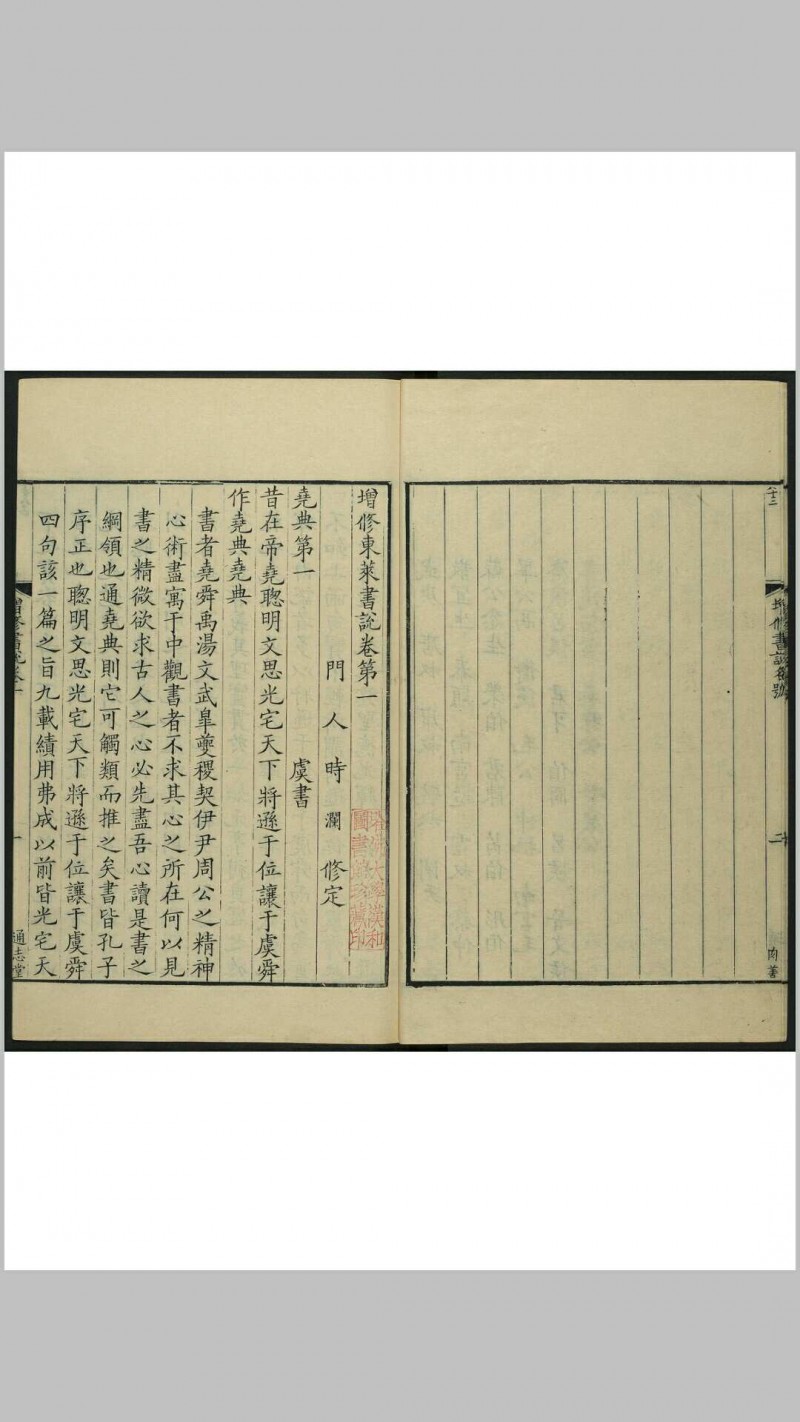 增修東萊書說卷第一
門人時瀾修定
堯典第一 虞書
昔在帝堯聰明文思光宅天下將遜于位讓于虞舜
作堯典堯典
書者堯舜禹湯文武皐夔稷契伊尹周公之精神
心術盡寓于中觀書者不求其心之所在何以見
書之精微欲求古人之心必先盡吾心讀是書之
綱領也通堯典則它可觸類而推之矣書皆孔子
序正也聰明文思光宅天下將遜于位讓于虞舜
四句該一篇之旨九載績用弗成以前皆光宅天
通志堂